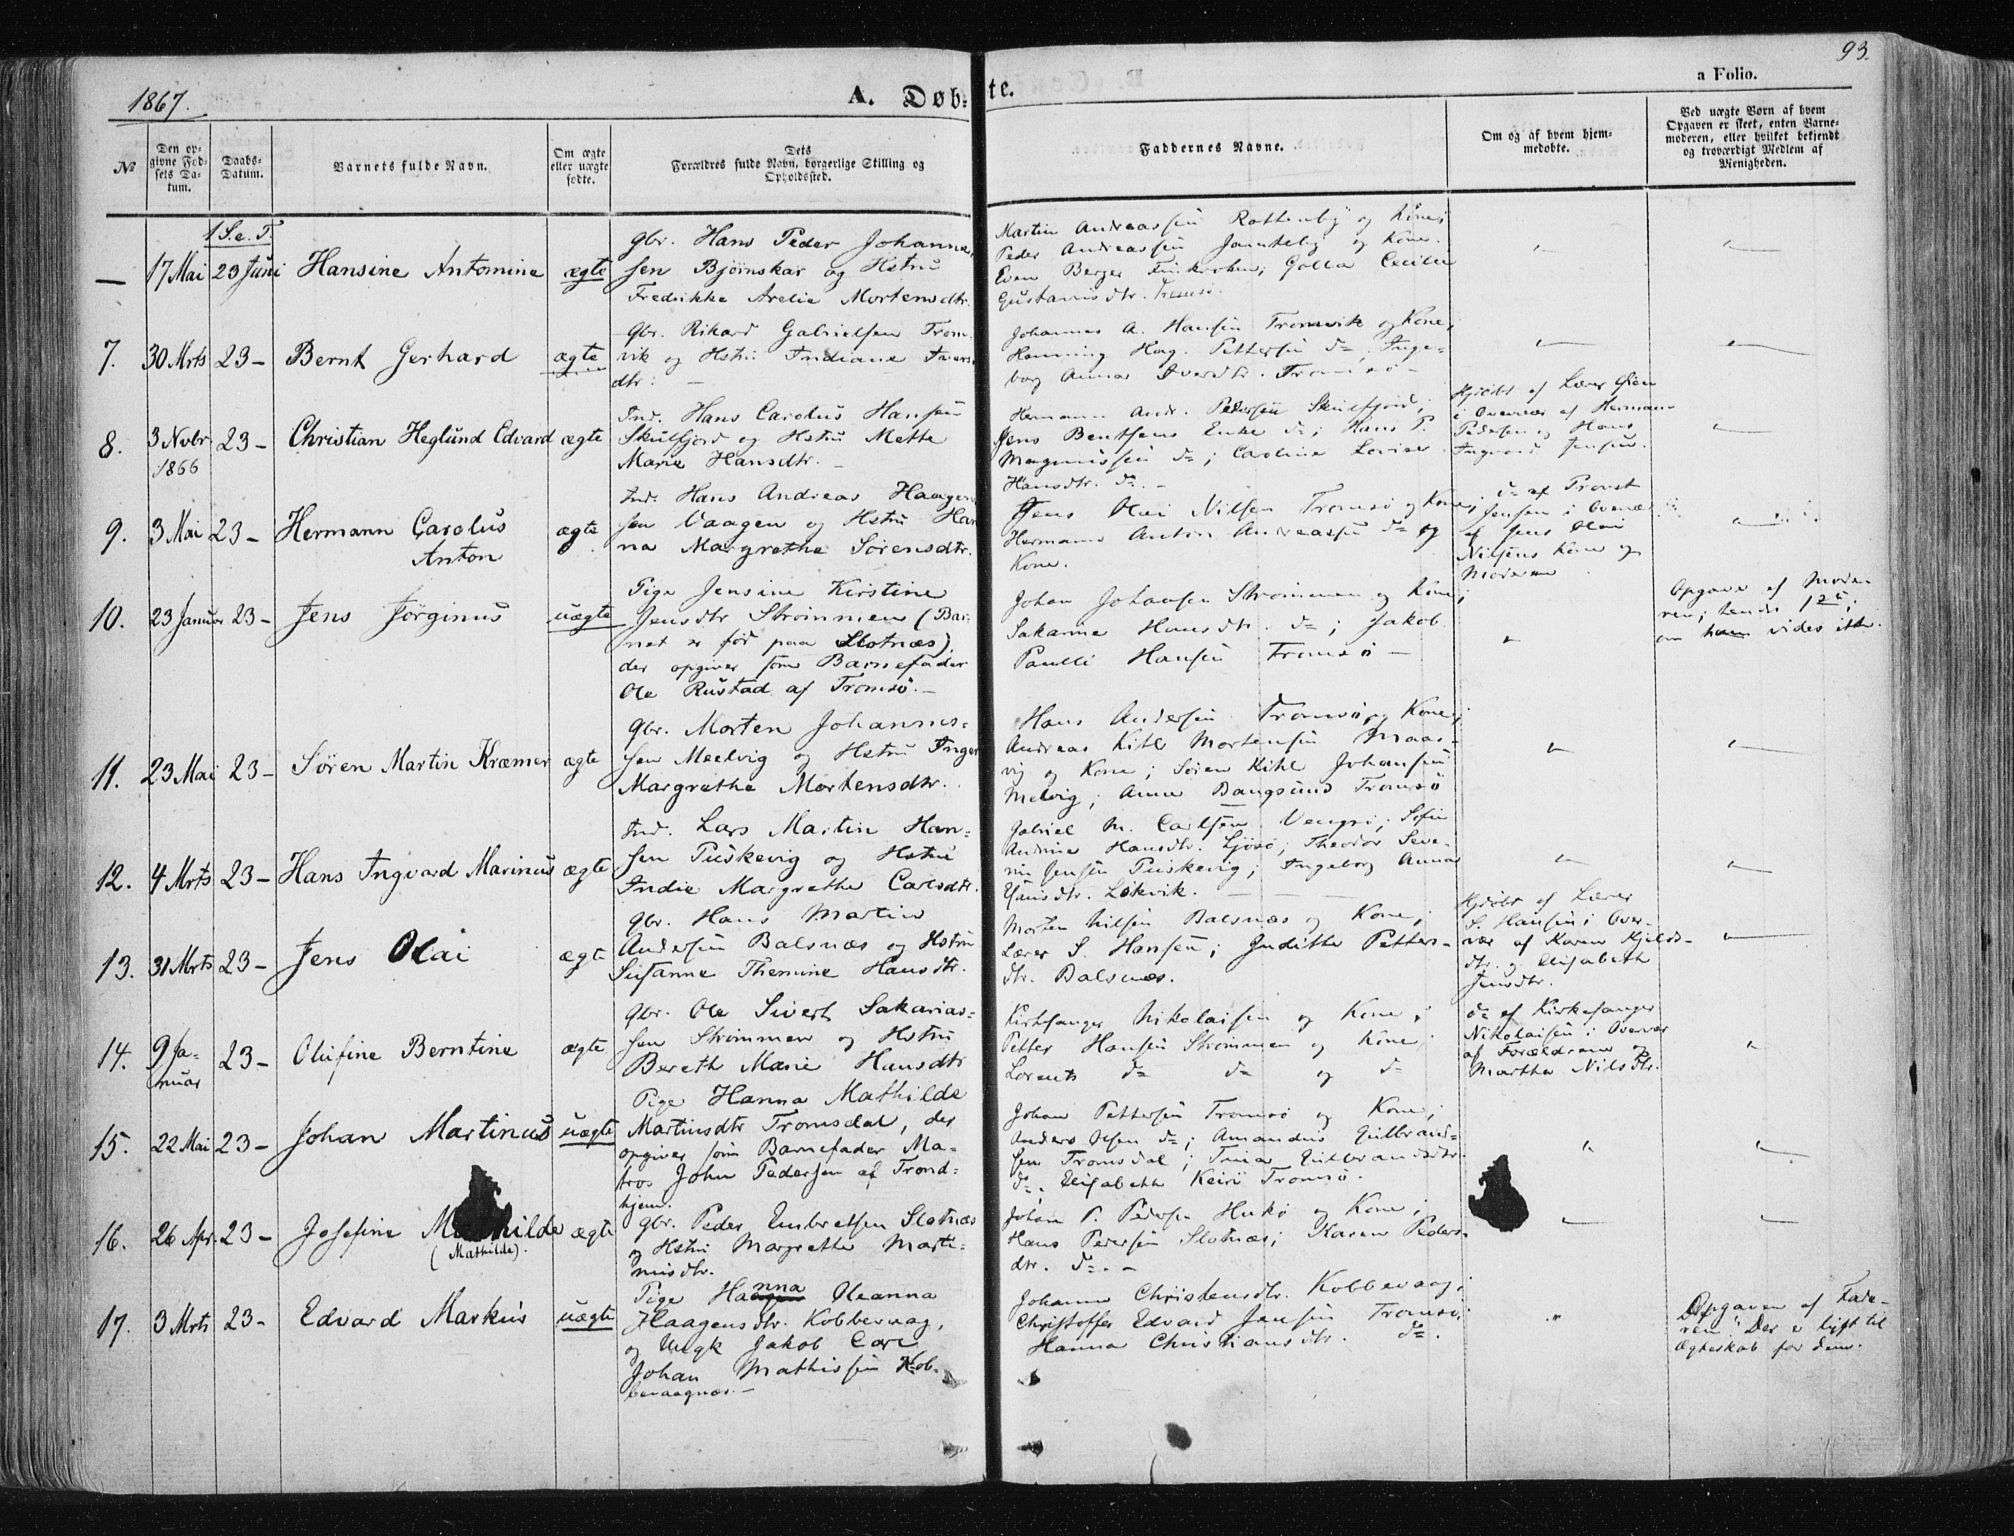 1867.
A. Døbte.
93.
a Folio.
№
Den opgivne Fødsels Datum.
Daabs-Datum.
Barnets fulde Navn.
Om ægte eller uægte fødte.
Dets Forældres fulde Navn, borgerlige Stilling og Opholdssted.
Faddernes Navne.
Om og af hvem hjemmedøbte.
Ved uægte Børn af hvem Opgaven er skeet, enten Barnemoderen, eller hvilket bekjendt og troværdigt Medlem af Menigheden.
1 S. e. T.
— 17 Mai 23 Juni Hansine Antomine ægte
Gbr. Hans Peder Johanne-
sen Bjørnskar og Hstru
Fredrikke Arelie Mortensdtr.
Martin Andreassen og Kone;
Peder Andreassen og Kone.
Even Berger Golla Cecilie
Gustavisdtr. Tromsø.
7. 30 Mrts 23 – Bernt Gerhard ægte
Gbr. Rikard Gabrielsen Trom-
vik og Hstru Indiane
dtr: –
Johannes A. Hansen Tromvik og Kone;
Henning Hag. Pettersen do; Inge-
borg Anna Tromsø –
8. 3 Novbr 1866 23 – Christian Heglund Edvard ægte
Ind. Hans Carolus Hansen
Skulfjord og Hstru Mette
Marie Hansdtr. –
Hermann Andr. Pedersen Skulfjord;
Jens Bentsens Enke do; Hans P.
Magnussen do; Caroline Lovise
Hansdtr. do. –
Hjdøbt af Lærer
i Overvær af Herman
Pedersen og Hans
Ingvard Jensen.
9. 3 Mai 23 – Hermann Carolus
Anton ægte
Ind. Hans Andreas Haagen-
sen Vaagen og Hstru Han-
na Margrethe Sørensdtr.
Jens Olai Nilsen Tromsø og Kone;
Hermann Anton Andreassen do og
Kone.
do af Provst
Jensen i Overvær
af Jens Olai
Nilsens Kone og
Moderen
10. 23 Januar 23 – Jens Jørginus uægte
Pige Jensine Kirstine
Jensdtr Strømmen (Bar-
net er født paa Slotnæs),
der opgiver som Barnefader
Ole Rustad af Tromsø. –
Johan Johansen Strømmen og Kone;
Sakarine Hansdtr. do; Jakob
Paulli Hansen Tromsø –
Opgave af Mode-
ren; hendes 1ste;
om ham vides ikke.
11. 23 Mai 23 – Søren Martin Kræmer ægte
Gbr. Morten Johannes-
sen Meelvig og Hstru Inger
Margrethe Mortensdtr.
Hans Andersen Tromsø og Kone;
Andreas Kihl Mortensen Maas-
vig og Kone; Søren Kihl Johansen
Melvig; Anne Bangsund Tromsø
12. 4 Mrts 23 – Hans Ingvard Marinus ægte
Ind. Lars Martin Han-
sen Tuskevig og Hstru
Indie Margrethe Carlsdtr.
Gabriel M. Carlsen Vengsø; Sofie
Andrine Hansdtr. Theodor Seve-
rin Jensen Tuskevig; Ingeborg Anna
Hansdtr. Løkvik.
13. 31 Mrts 23 – Jens Olai ægte
Gbr. Hans Martin
Andersen Balsnæs og Hstru
Susanne Themine Hansdtr.
Morten Nilsen Balsnæs og Kone;
Lærer S. Hansen; Judithe Petters-
dtr. Balsnæs.
Hjdøbt af Lærer
S. Hansen i Over-
vær af Karen Kjelds-
dtr. og Elisabeth
Jensdtr.
14. 9 Ja-
nuar 23 – Olufine Berntine ægte
Gbr. Ole Sivert Sakarias-
sen Strømmen og Hstru
Bereth Marie Hansdtr
Kirksanger Nikolaisen og Kone;
Petter Hansen Strømmen og Kone
Lorents do do og do
do af Kirkesanger
Nikolaisen i Overvær
af Forældrene og
Martha Nilsdtr.
15. 22 Mai 23 – Johan Martinus uægte
Pige Hanna Mathilde
Martinsdtr Tromsdal, der
opgiver som Barnefader Ma-
tros John Pedersen af Trond-
hjem.
Johan Pettersen Tromsø og Kone;
Anders Olsen do; Amandus Gulbrand-
sen Tromsdal; Gulbrandsdtr.
do. Elisabeth Tromsø.
16. 26 Apr. 23 – Josefine Mathilde ægte
(Mathilde).
Gbr. Peder Enbretsen Slotnæs
og Hstru Margrethe Marti-
nusdtr.
Johan P. Pedersen og Kone;
Hans Pedersen Slotnæs; Karen Peders-
dtr. do. –
17. 3 Mrts 23 – Edvard Markus uægte
Pige Hanna Oleanna
Haagensdtr. Kobbevaag,
og Ungk Jakob Carl
Johan Mathissen Kob-
bevaagnæs. –
Johanne Christensdtr. Kobbevaag;
Christoffer Edvard Jensen Tromsø;
Hanna Christiansdtr. do.
Opgaven af Fade-
ren. Der er lyst til
Ægteskab for dem.